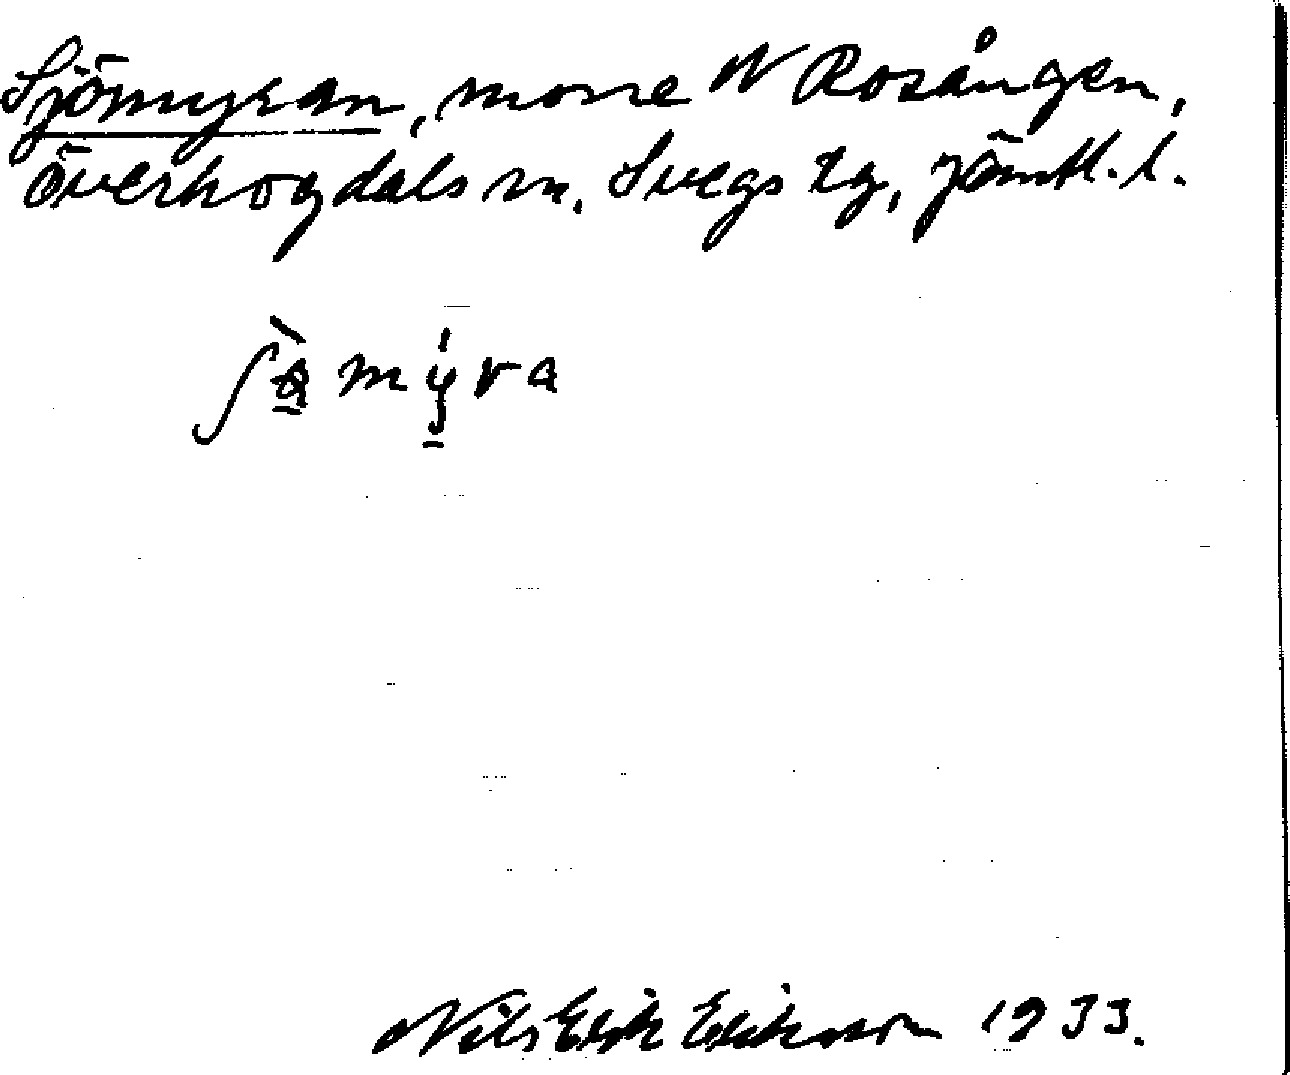 Sjömyran, mosse N Rosången,
Överhogdals sn. Svegs tg, Jämtl. l.
Nils Erik Erikson 1933.